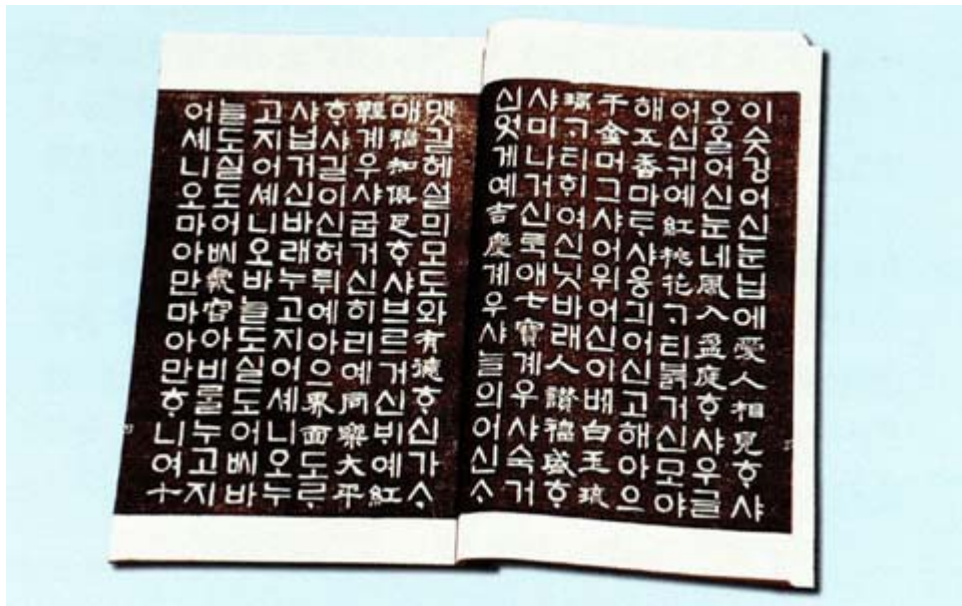 이슷깅어신눈닙에愛人相見ᄒᆞ샤
오올어신눈네風入盈庭ᄒᆞ샤우글
어신귀예紅桃花ᄀᆞ티븕거신모야
해五香마ᄐᆞ샤웅긔어신고해아으
千金머그샤어위어신이베白玉琉
璃ᄀᆞ티ᄒᆡ여신닛바래人讚福盛ᄒᆞ
샤미나거신ᄐᆞᆨ애七寶계우샤숙거
신엇게예吉慶계우샤늘의어신ᄉᆞ
맷길헤설믜모도와有德ᄒᆞ신가ᄉᆞ
매福智俱足ᄒᆞ샤브르거신ᄇᆡ예紅
鞓계우샤굽거신히리예同樂大平
ᄒᆞ샤길이신허튀예아으界面도ᄅᆞ
샤넙거신바래누고지어셰니오누
고지어셰니오바늘도실도어ᄡᅵ바
늘도실도어ᄡᅵ處容아비ᄅᆞᆯ누고지
어셰니오마아만마아만ᄒᆞ니여十